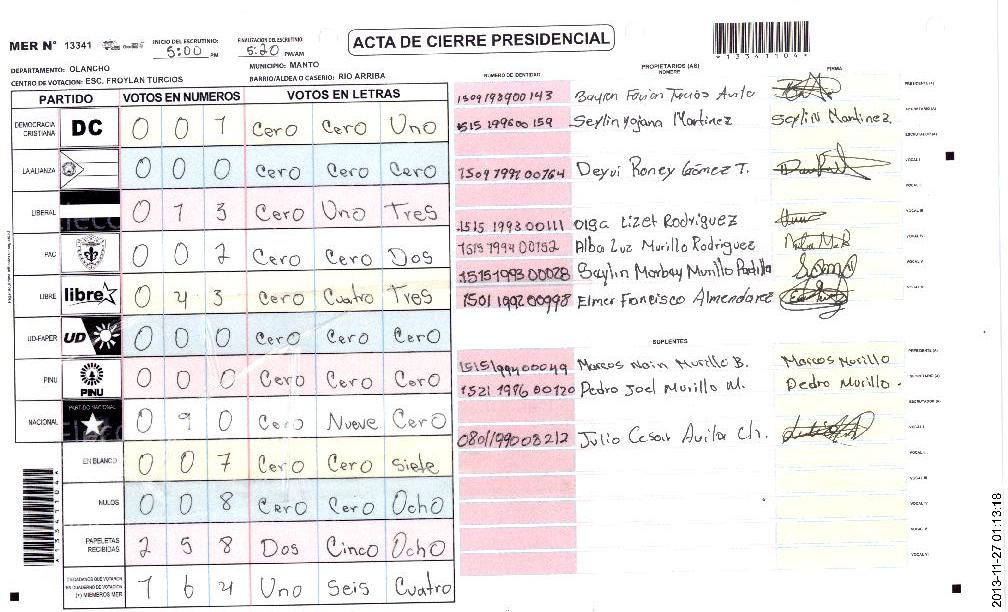 MER N° 13341
INICIO DEL ESCRUTINIO: 5:00 PM
FINALIZACIÓN DEL ESCRUTINIO 5:20 PM/AM
ACTA DE CIERRE PRESIDENCIAL
*13341104*
DEPARTAMENTO: OLANCHO
MUNICIPIO: MANTO
CENTRO DE VOTACION: ESC. FROYLAN TURCIOS
BARRIO/ALDEA O CASERIO: RIO ARRIBA
PARTIDO VOTOS EN NUMEROS VOTOS EN LETRAS
DEMOCRACIA CRISTIANA DC 0 0 1 Cero Cero Uno
LA ALIANZA 0 0 0 Cero Cero Cero
LIBERAL 0 1 3 Cero Uno Tres
PAC 0 0 2 Cero Cero Dos
LIBRE libre 0 4 3 Cero Cuatro Tres
UD-FAPER UD 0 0 0 Cero Cero Cero
PINU PINU 0 0 0 Cero Cero Cero
NACIONAL PARTIDO NACIONAL 0 9 0 Cero Nueve Cero
EN BLANCO 0 0 7 Cero Cero Siete
NULOS 0 0 8 Cero Cero Ocho
PAPELETAS RECIBIDAS 2 5 8 Dos Cinco Ocho
CIUDADANOS QUE VOTARON EN CUADERNO DE VOTACION (+) MIEMBROS MER 1 6 4 Uno Seis Cuatro
NUMERO DE IDENTIDAD
PROPIETARIOS (AS)
NOMBRE
FIRMA
1509198900143 Bayron Favian Turcios Avila PRESIDENTE (A)
1515 199600159 Seylin Yojana Martinez Seylin Martinez SECRETARIO (A)
ESCRUTADOR (A)
1509 1991 00764 Deyvi Roney Gómez T. VOCAL I
VOCAL II
1515 1993 00111 Olga Lizet Rodriguez VOCAL III
1515 1994 00152 Alba Luz Murillo Rodriguez VOCAL IV
1515 1993 00028 Saylin Marbay Murillo Padilla VOCAL V
1501 1992 00998 Elmer Francisco Almendarez
SUPLENTES
1515199400049 Marcos Nain Murillo B. Marcos Murillo PRESIDENTE (A)
1521 1986 00120 Pedro Joel Murillo M. Pedro Murillo. SECRETARIO (A)
ESCRUTADOR (A)
0801199008212 Julio Cesar Avila Ch. VOCAL I
VOCAL II
VOCAL III
VOCAL IV
VOCAL V
VOCAL VI
2013-11-27 01:13:18